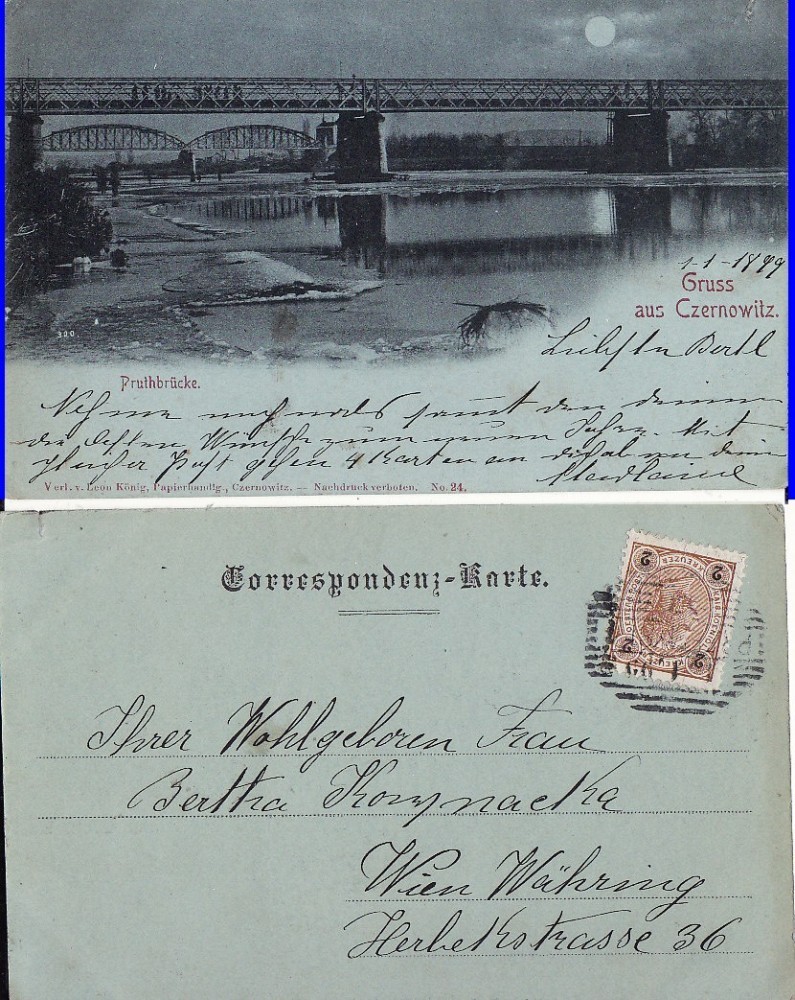 1-1-1899
Gruss
aus Czernowitz.
300
Liebste Bertl
Pruthbrücke.
Nehme nochmals samt den deinen
die besten Wünsche zum neuen Jahre. Mit
gleicher Post gehen 4 Karten an
Verl. v. Leon König, Papierhandlg., Czernowitz. — Nachdruck verboten. No. 24.
Correspondenz-Karte.
2 2
KREUZER
2 2
Ihrer Wohlgeboren Frau
Bertha
Wien Währing
Herbekstrasse 36